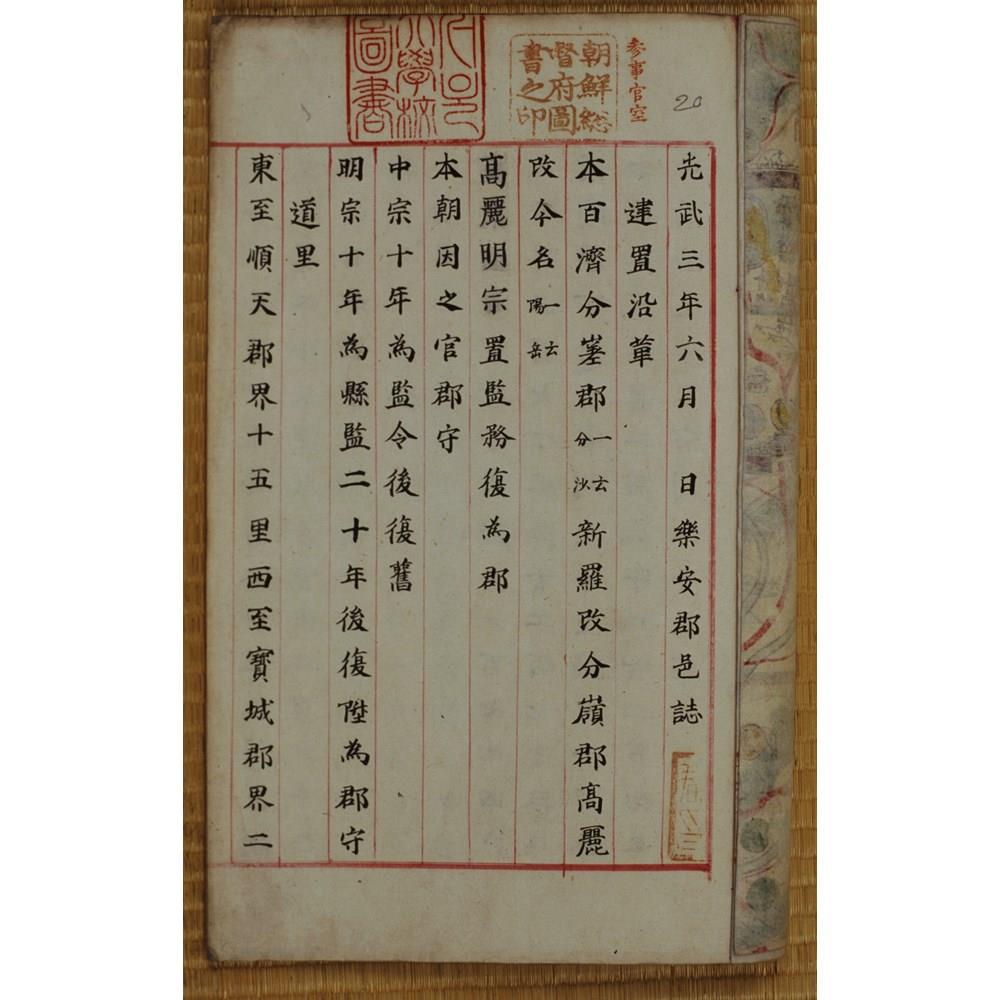 叅事官室
20
朝鮮総
督府圖
書之印
大學校
圖書
光武三年六月 日樂安郡邑誌
建置沿革
本百濟分嵳郡一云分沙新羅改分嶺郡高麗
改今名一云陽岳
高麗明宗置監務復為郡
本朝因之官郡守
中宗十年為監令後復舊
明宗十年為縣監二十年後復陞為郡守
道里
東至順天郡界十五里西至寶城郡界二